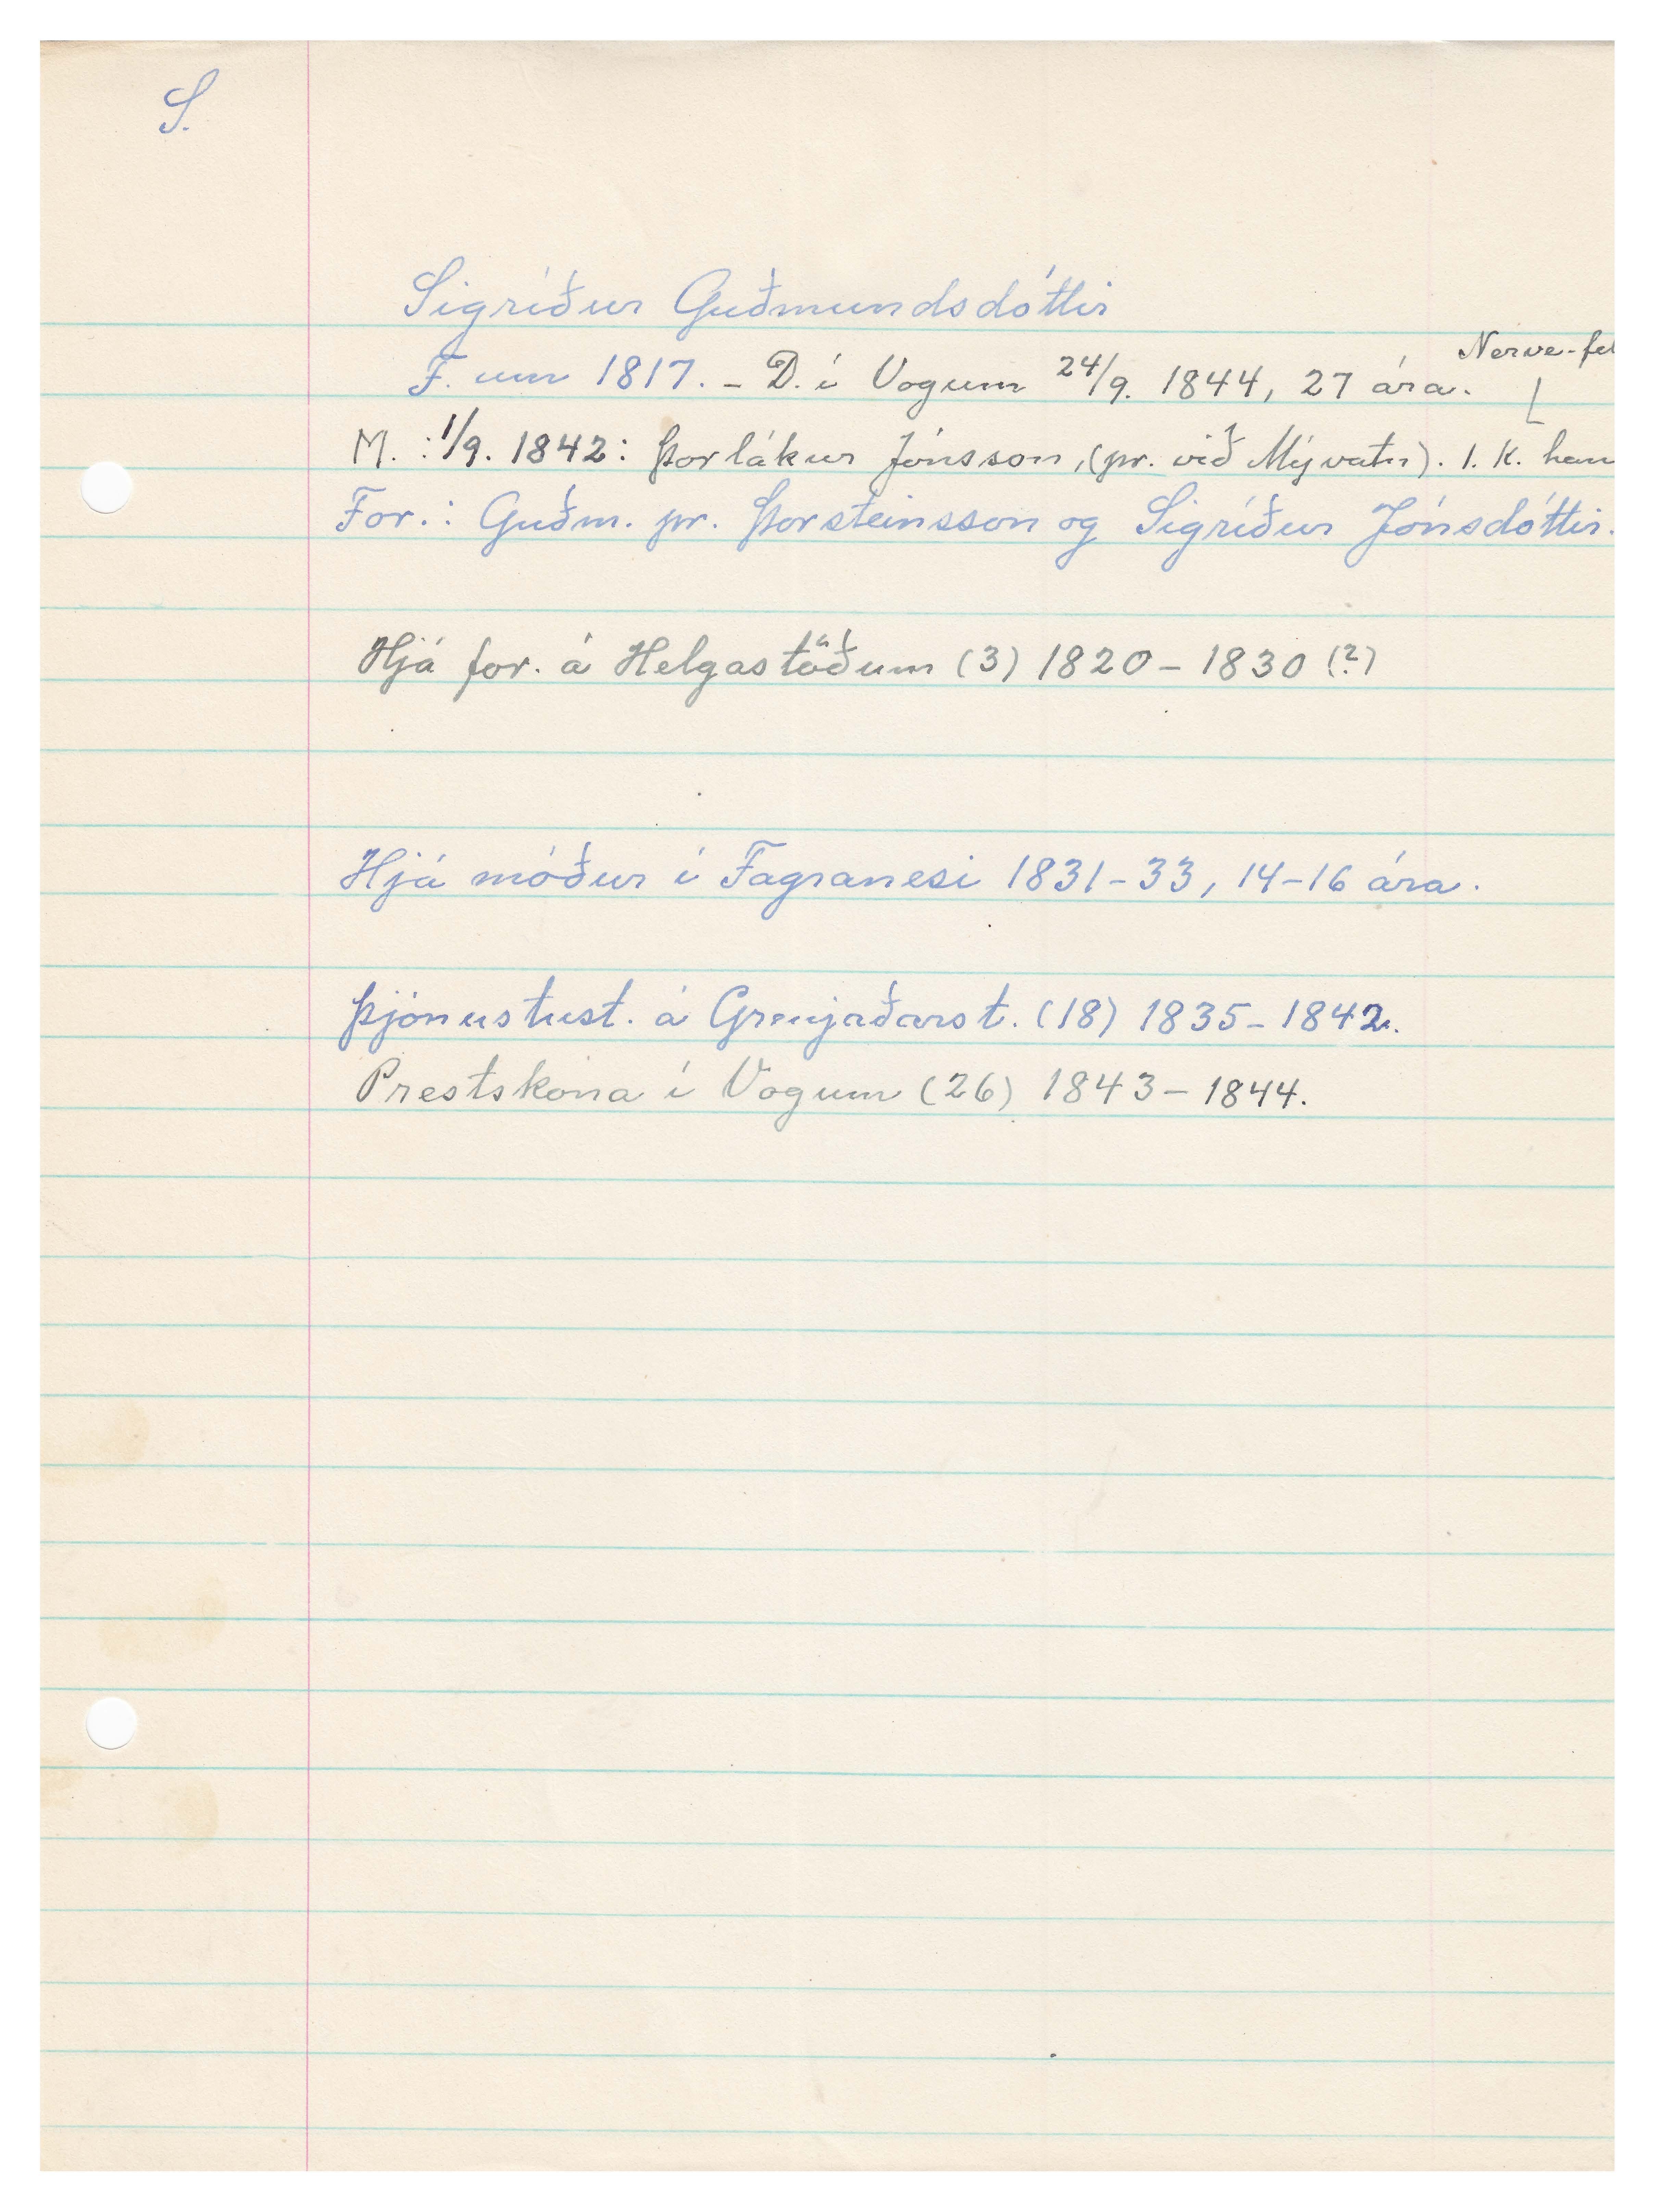 S.
Sigríður Guðmundsdóttir
Nerve-fe
F. um 1817. - D. í Vogum 24/9. 1844, 27 ára.
M. : 1/9. 1842: Þorlákur Jónsson, (pr. við Mývatn). 1. K. han
For.: Guðm. pr. Þorsteinsson og Sigríður Jónsdóttir.
Hjá for. á Helgastöðum (3) 1820 - 1830 (?)
Hjá móður í Fagranesi 1831-33, 14-16 ára.
Þjónustust. á Grenjaðarst. (18) 1835-1842.
Prestskona í Vogum (26) 1843-1844.